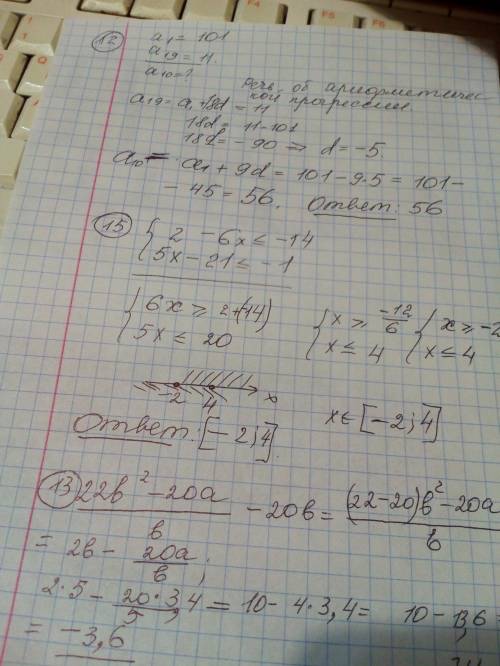 12 a₁ = 101
a₁₉ = 11.
a₁₀ = ?
речь об арифметической прогрессии.
a₁₉ = a₁ + 18d = 11
18d = 11 - 101
18d = - 90 => d = -5.
a₁₀ = a₁ + 9d = 101 - 9·5 = 101 -
- 45 = 56. Ответ: 56
15 { 2 - 6x ≤ -14
5x - 21 ≤ -1
{ 6x ≥ 2+(-14) { x ≥ -12/6 { x ≥ -2
5x ≤ 20 x ≤ 4 x ≤ 4
-2 4 x
x ∈ [-2; 4]
Ответ: [-2; 4].
13 (22b² - 20a)/b - 20b = ((22-20)b² - 20a)/b
= 2b - 20a/b;
2·5 - (20·3,4)/5 = 10 - 4·3,4 = 10 - 13,6 =
= -3,6